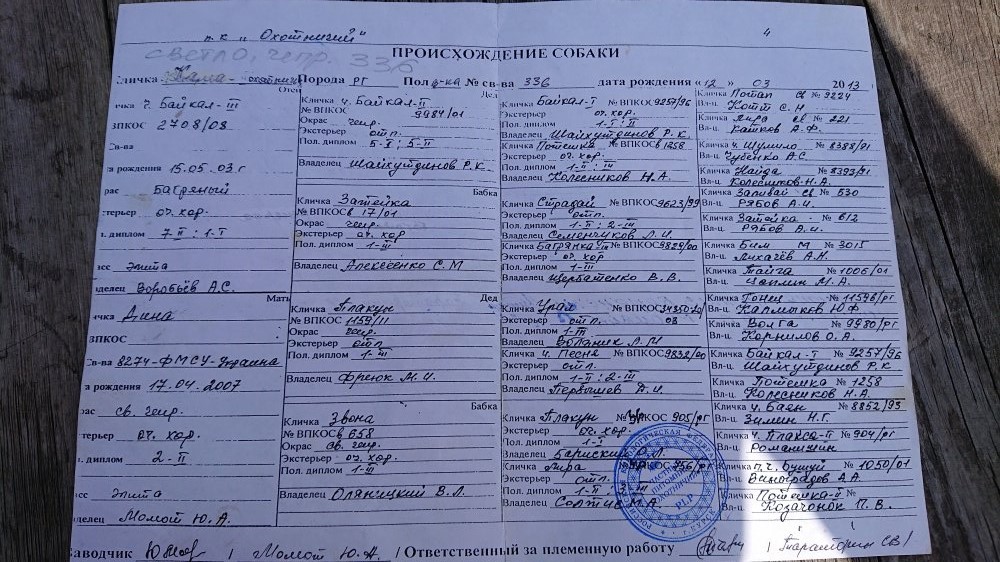 п.к „ Охотничий"
4
светло, чепр. 336
ПРОИСХОЖДЕНИЕ СОБАКИ
кличка Кама - охотнич Порода рг Пол с-ка № св-ва 336 дата рождения «12» 03 2013
Отец
ч. Байкал-III
ЗПКОС 2708/08
св-ва
а рождения 15.05.03 г
рас Багряный
стерьер оч. хор.
л. диплом 7-II : 1-I
асс элита
делец Воробьёв А.С.
Мать
Дина
ЗПКОС
св-ва 8274-ФМСУ-Украина
а рождения 17.04.2007
рас св. чепр.
стерьер оч. хор.
л. диплом 2-II
асс элита
делец Момот Ю.А.
Дед
Кличка ч. Байкал-II
№ ВПКОС 9984/01
Окрас чепр.
Экстерьер отл.
Пол. диплом 5-I ; 5-II
Владелец Шайхутдинов Р.К.
Бабка
Кличка Затейка
№ ВПКОС 17/01
Окрас чепр.
Экстерьер оч. хор
Пол. диплом 1-III
Владелец Алексеенко С.М
Дед
Кличка Плакун
№ ВПКОС 1159/11
Окрас чепр.
Экстерьер отл
Пол. диплом 1-III
Владелец Фреюк М.И.
Бабка
Кличка Звона
№ ВПКОС 658
Окрас св. чепр.
Экстерьер оч. хор.
Пол. диплом 1-III
Владелец Оляницкий В.Л.
Кличка Байкал-I № ВПКОС 9257/96
Экстерьер оч. хор.
Пол. диплом 1-I ; II
Владелец Шайхутдинов Р.К.
Кличка Потешка № ВПКОС 1258
Экстерьер оч. хор.
Пол. диплом 1-II ; III
Владелец Колесников Н.А.
Кличка Страдай № ВПКОС 9623/99
Экстерьер отл.
Пол. диплом 1-II ; 2-III
Владелец Семенчуков Л.И.
Кличка Багрянка-II № ВПКОС 9829/00
Экстерьер оч. хор
Пол. диплом 1-III
Владелец Щербатенко В.В.
Кличка Урал № ВПКОС
Экстерьер отл. 03
Пол. диплом 1-III
Владелец
Кличка ч. Песня № ВПКОС 9832/00
Экстерьер отл.
Пол. диплом 1-II ; 2-III
Владелец Первышев А.И.
Кличка Плакун № ВПКОС 905/рг
Экстерьер оч. хор.
Пол. диплом 1-I
Владелец
Кличка Лира № ВПКОС 756/рг
Экстерьер отл.
Пол. диплом
Владелец
Кличка Потап св № 9224
Вл-ц Котт С.Н
Кличка Лира св № 221
Вл-ц. Катков А.Ф.
Кличка ч. Шумило № 8388/91
Вл-ц. Чубенко А.С.
Кличка Найда № 8393/91
Вл-ц. Колесников Н.А.
Кличка Заливай св № 530
Вл-ц РЯБОВ А.И.
Кличка Затейка № 612
Вл-ц. РЯБОВ А.И.
Кличка Бим М № 3015
Вл-ц. Лихачёв А.Н.
Кличка Тайга № 1006/01
Вл-ц. Чаплин М.А.
Кличка Гонец № 11596/рг
Вл-ц. Калмыков Ю.Ф
Кличка Волга № 9980/рг
Вл-ц. Корнилов О.А.
Кличка Байкал-I № 9257/96
Вл-ц. Шайхутдинов Р.К
Кличка Потешка № 1258
Вл-ц. Колесников Н.А.
Кличка ч. Баян № 8852/93
Вл-ц. Зимин Н.Г.
Кличка ч. Плакса-II № 904/рг
Вл-ц. Романишин
Кличка п.ч. Бушуй № 1050/01
Вл-ц. Виноградов А.А.
Кличка Потешка-II №
Вл-ц. Козачонок П.В.
аводчик / Момот Ю.А. / Ответственный за племенную работу